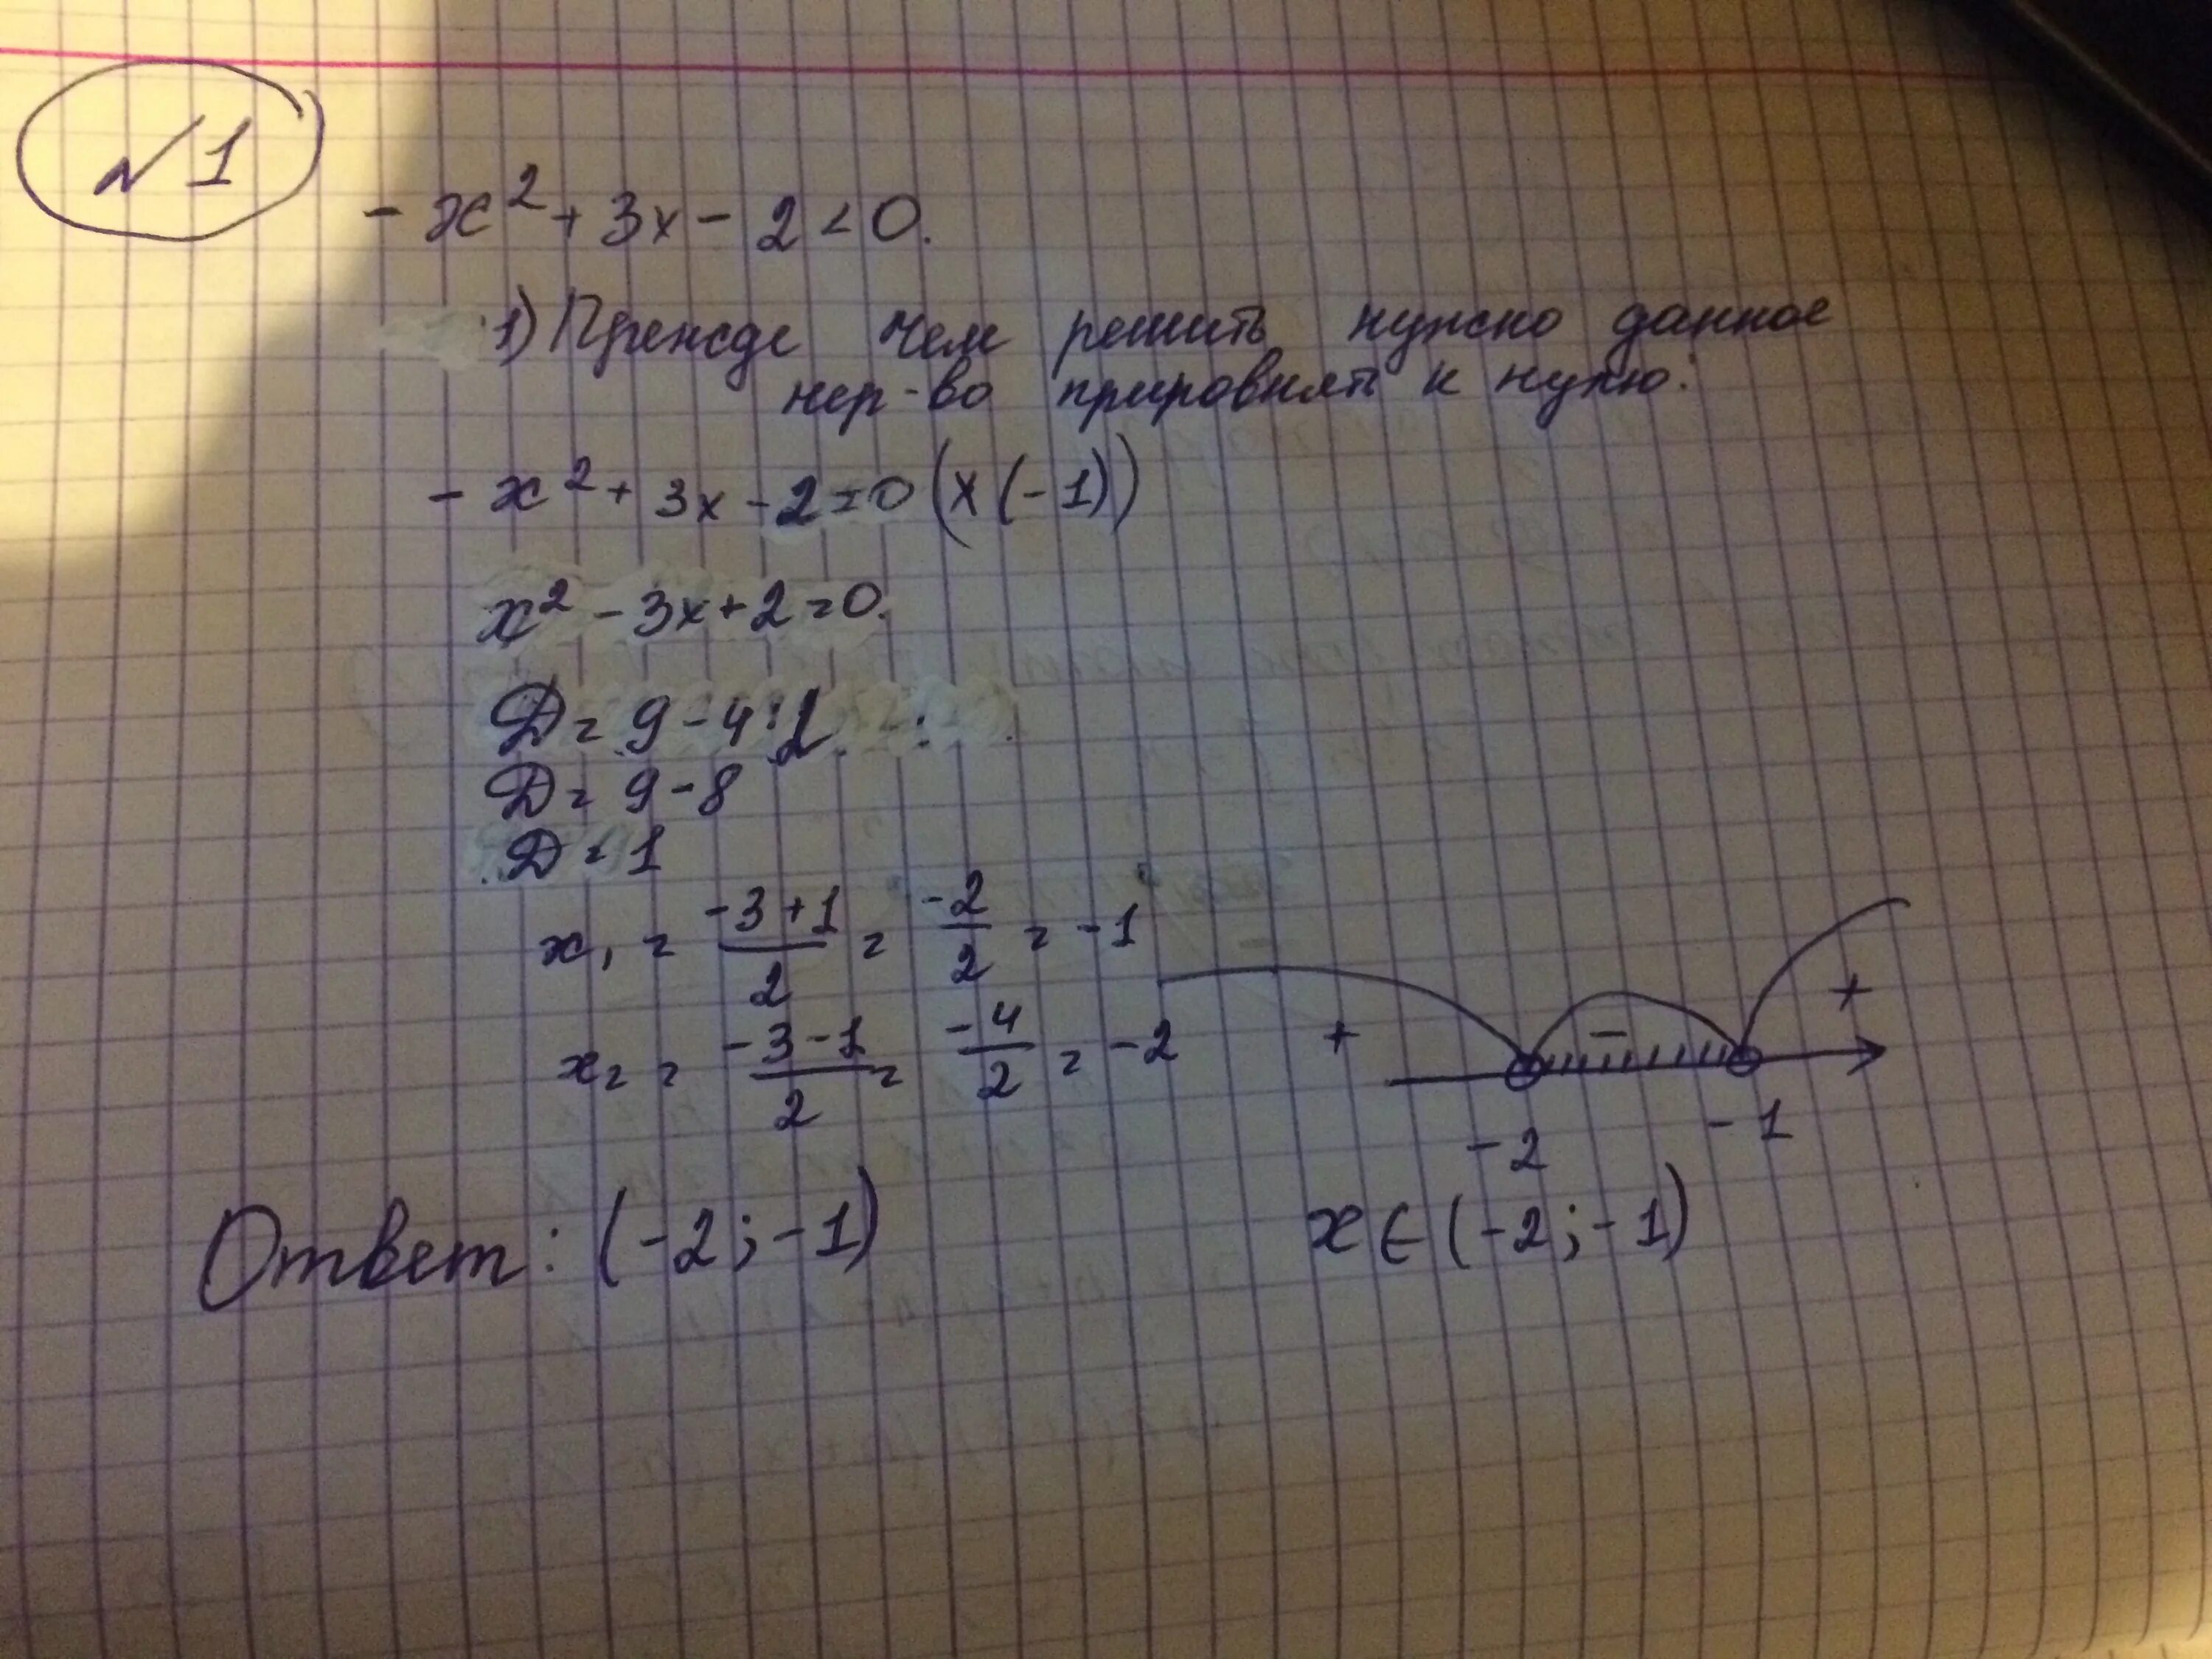 №1
- x² + 3x - 2 < 0.
1) Прежде чем решить нужно данное
нер-во прировнять к нулю:
- x² + 3x - 2 = 0 (x (-1))
x² - 3x + 2 = 0.
D = 9 - 4 · 2
D = 9 - 8
D = 1
x₁ = \frac{-3+1}{2} = \frac{-2}{2} = -1
x₂ = \frac{-3-1}{2} = \frac{-4}{2} = -2
+ - +
-2 -1
Ответ: (-2; -1)
x ∈ (-2; -1)